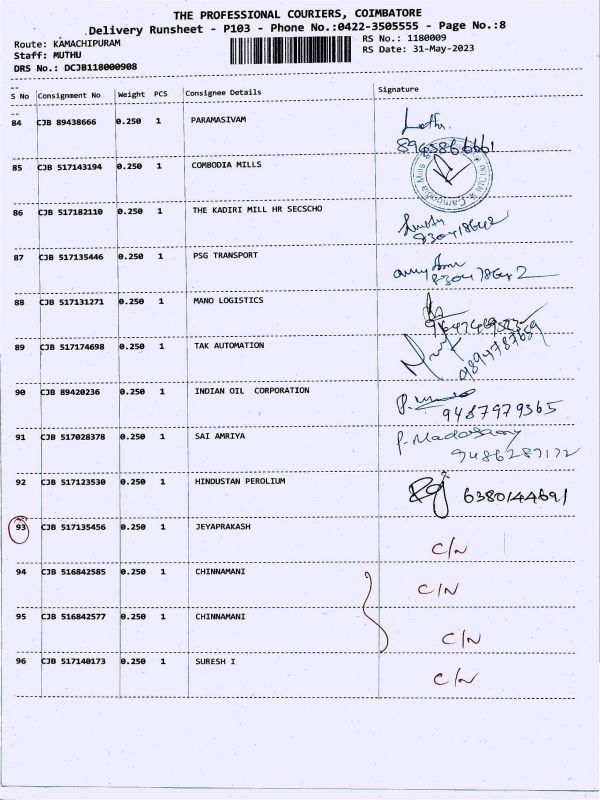 THE PROFESSIONAL COURIERS, COIMBATORE
Delivery Runsheet - P103 - Phone No.:0422-3505555 - Page No.:8
Route: KAMACHIPURAM RS No.: 1180009
Staff: MUTHU RS Date: 31-May-2023
DRS No.: DCJB118000908
S No Consignment No Weight PCS Consignee Details Signature
84 CJB 89438666 0.250 1 PARAMASIVAM
85 CJB 517143194 0.250 1 COMBODIA MILLS
86 CJB 517182110 0.250 1 THE KADIRI MILL HR SECSCHO
87 CJB 517135446 0.250 1 PSG TRANSPORT
88 CJB 517131271 0.250 1 MANO LOGISTICS
89 CJB 517174698 0.250 1 TAK AUTOMATION
90 CJB 89420236 0.250 1 INDIAN OIL CORPORATION
9487979365
91 CJB 517028378 0.250 1 SAI AMRIYA
92 CJB 517123530 0.250 1 HINDUSTAN PEROLIUM
6380144691
93 CJB 517135456 0.250 1 JEYAPRAKASH
C/N
94 CJB 516842585 0.250 1 CHINNAMANI
C/N
95 CJB 516842577 0.250 1 CHINNAMANI
C/N
96 CJB 517140173 0.250 1 SURESH I
C/N